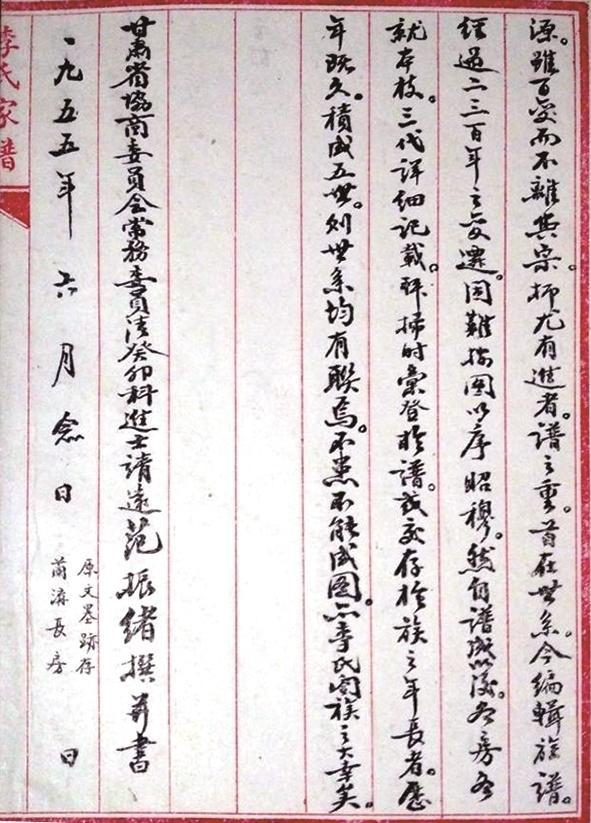 源。雖百變而不離其宗。抑尤有進者。譜之重。首在世系。今編輯族譜。
經過二三百年之變遷。固難按圖以序昭穆。然自譜成以後。各房各
就本枝。三代詳細記載。拜掃時彙登於譜。或交存於族之年長者。歷
年既久。積成五世。則世系均有聯焉。不患不能成圖。亦李氏闔族之大幸矣。
甘肅省協商委員会常務委員清癸卯科進士靖遠范振緒撰并書
一九五五年六月念日
原文墨跡存
蘭濱長房
日
李氏家譜